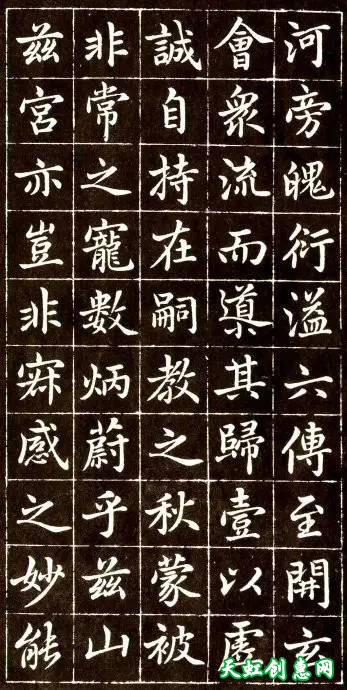 河旁魄衍溢六傳至開玄
會衆流而導其歸壹以虛
誠自持在嗣教之秋蒙被
非常之寵數炳蔚乎茲山
茲宮亦豈非寂感之妙能
天虹创意网